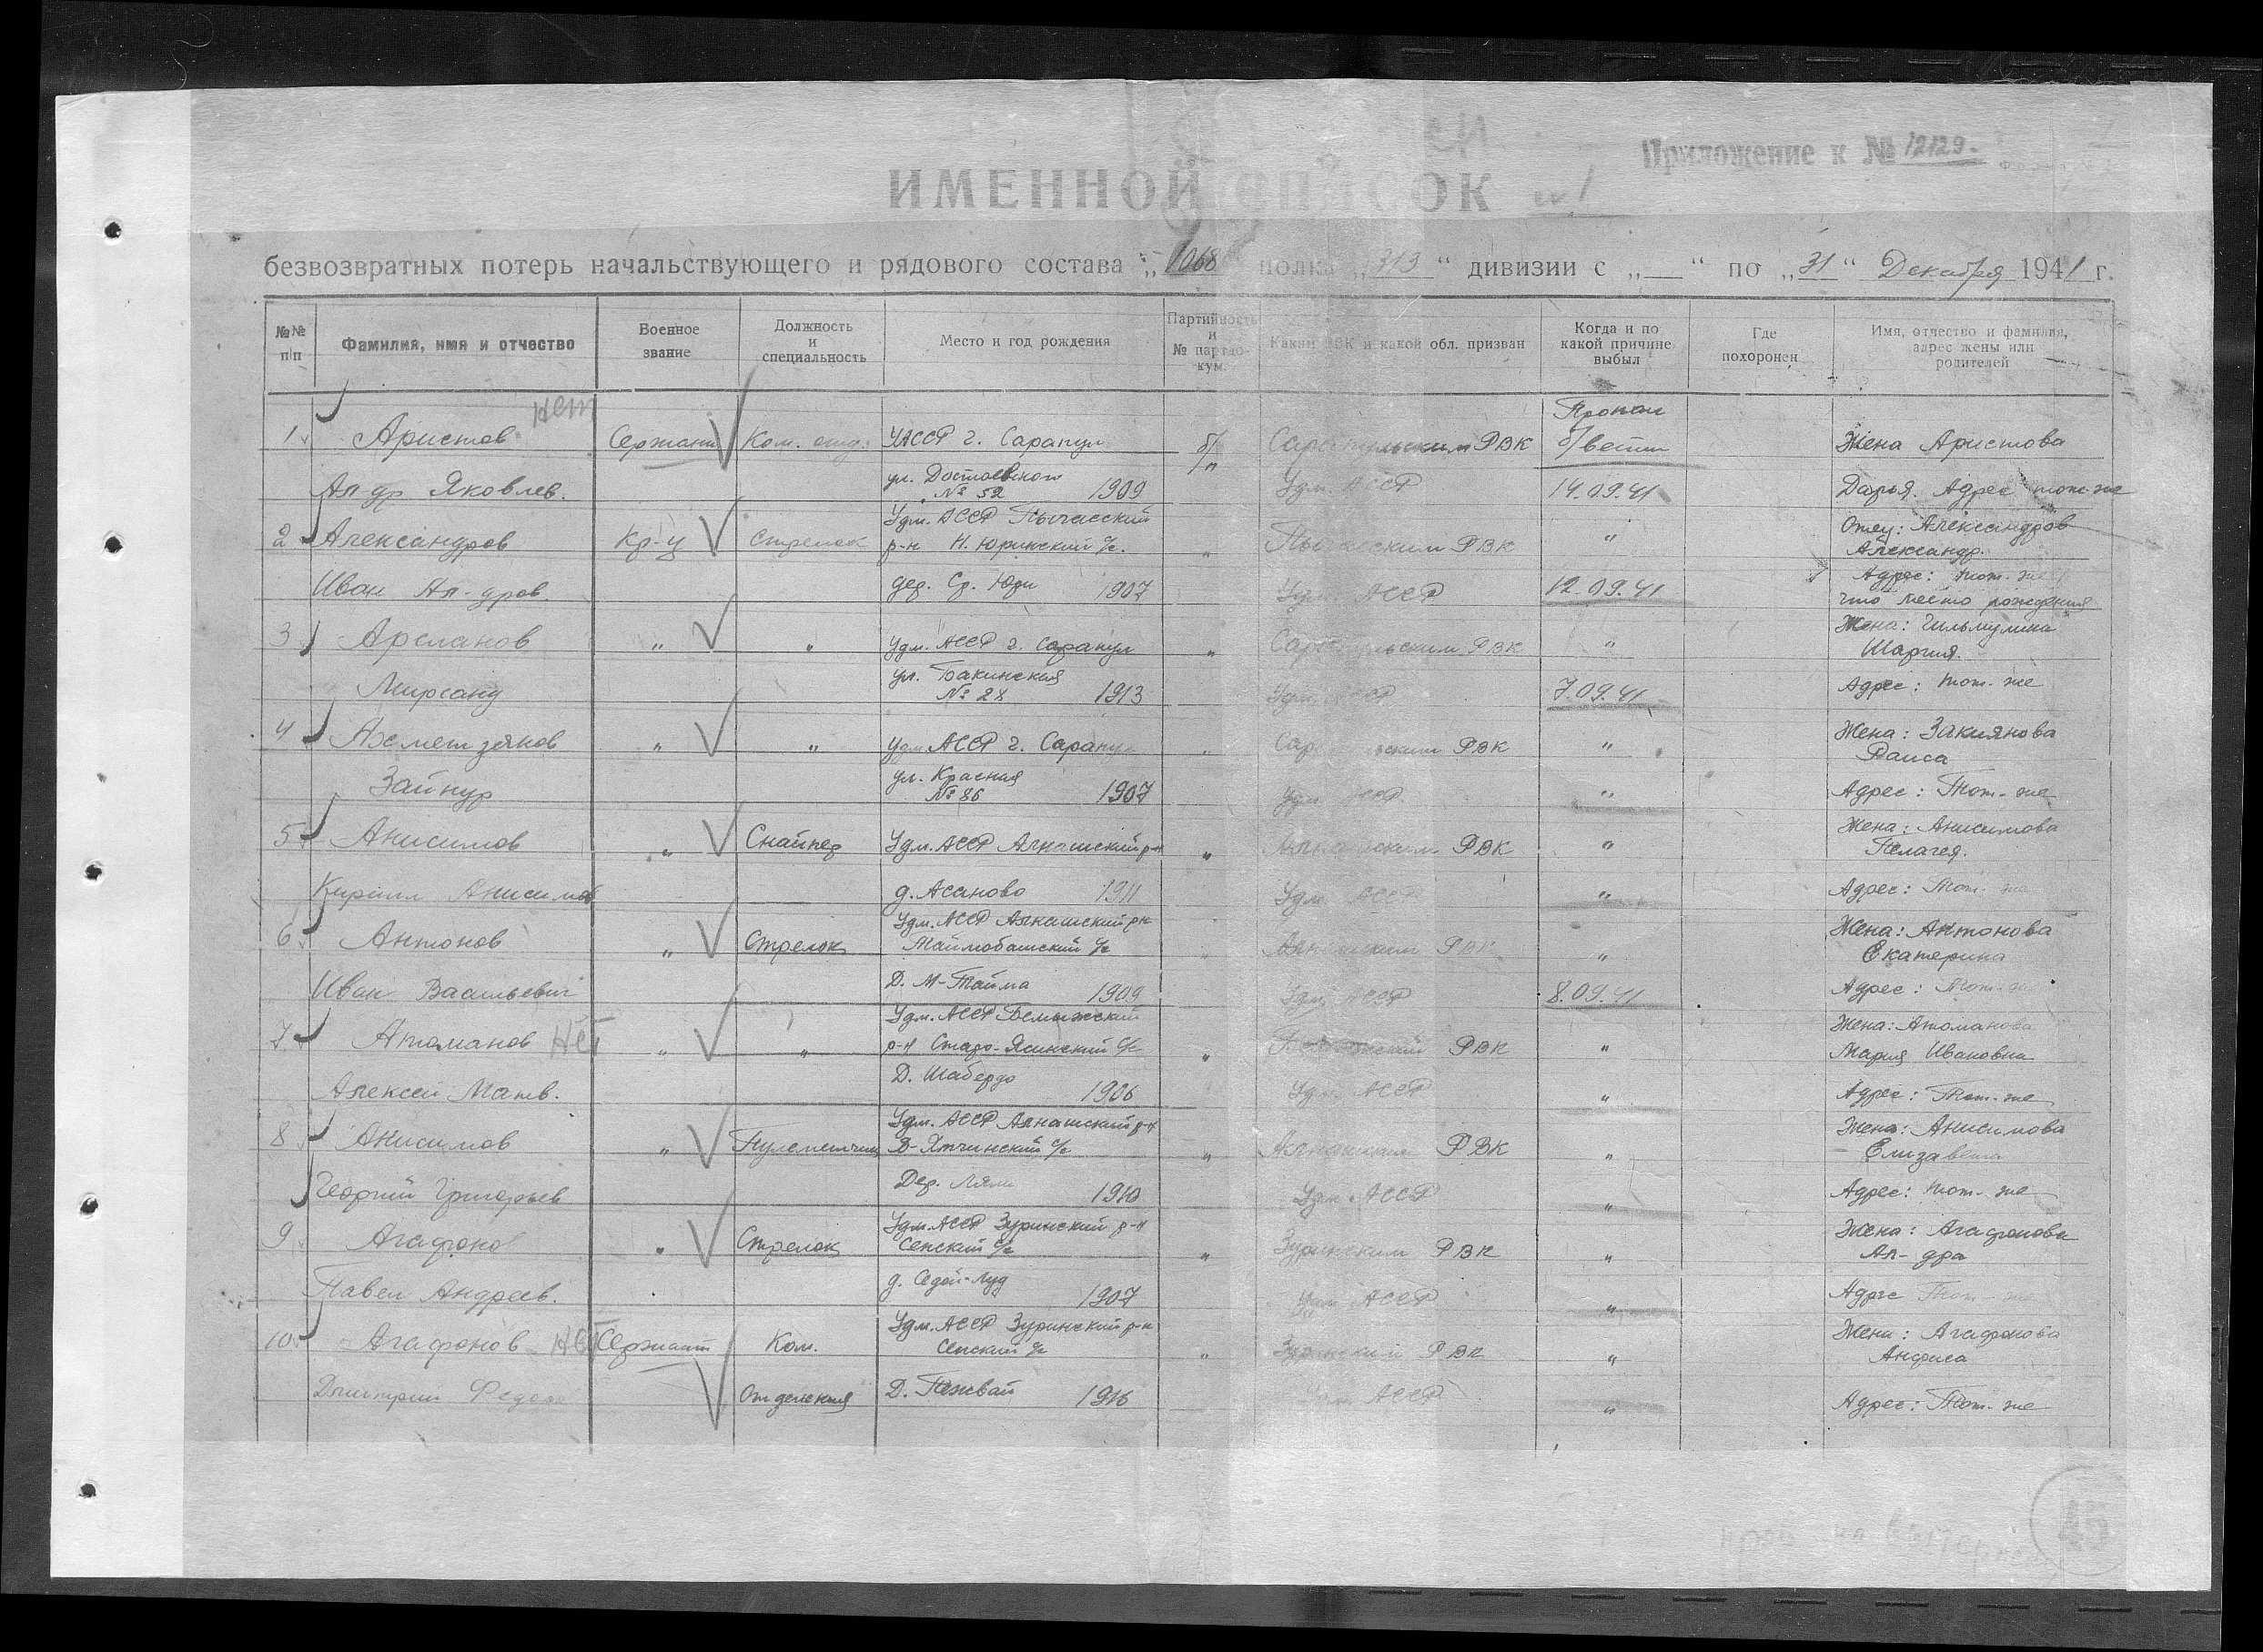 Приложение к № 12129.
ИМЕННОЙ СПИСОК №1
безвозвратных потерь начальствующего и рядового состава „1068 полка „313“ дивизии с „—“ по „31“ Декабря 1941 г.
№№ п/п
Фамилия, имя и отчество
Военное звание
Должность и специальность
Место и год рождения
Партийность и № партдокум.
Каким РВК и какой обл. призван
Когда и по какой причине выбыл
Где похоронен
Имя, отчество и фамилия, адрес жены или родителей
1. Аристов нет Сержант Ком. отд. УАССР г. Сарапул б/п Сарапульским РВК Пропал б/вести Жена Аристова
Ал-др Яковлев. ул. Достоевского № 52 1909 Удм. АССР 14.09.41 Дарья. Адрес тот-же
2 Александров Кр-ц Стрелок Удм. АССР Пычасский р-н Н. Юринский с/с. " Пычасским РВК " Отец: Александров Александр.
Иван Ал-дров. дер. Ср. Юри 1907 Удм. АССР 12.09.41 Адрес: тот-же что место рождения
3 Арсланов " " Удм. АССР г. Сарапул " Сарапульским РВК " Жена: Гильмулина Шаргия.
Мирсаид ул. Бакинская № 2 1913 Удм. АССР 7.09.41 Адрес: тот-же
4 Ахметзянов " " Удм. АССР г. Сарапул " Сарапульским РВК " Жена: Закиянова Раиса
Зайнур ул. Красная № 86 1907 Удм. АССР " Адрес: Тот-же
5 Анисимов " Снайпер Удм. АССР Алнашский р-н " Алнашским РВК " Жена: Анисимова Пелагея.
Кирилл Анисимов д. Асаново 1911 Удм. АССР " Адрес: Тот-же
6 Антонов " Стрелок Удм. АССР Алнашский р-н Таймобашский с/с " Алнашским РВК " Жена: Антонова Екатерина
Иван Васильевич Д. М-Тойма 1909 Удм. АССР 8.09.41 Адрес: Тот-же
7 Атаманов Нет " " Удм. АССР Бемыжский р-н Старо-Ясинский с/с " РВК " Жена: Атаманова Мария Ивановна
Алексей Матв. Д. Шабердо 1906 Удм. АССР " Адрес: Тот-же
8 Анисимов " Пулеметчик Удм. АССР Алнашский р-н В-Ятчинский с/с " Алнашским РВК " Жена: Анисимова Елизавета
Георгий Григорьев Дер. 1910 Удм. АССР " Адрес: тот-же
9 Агафонов " Стрелок Удм. АССР Зуринский р-н Сепский с/с " Зуринским РВК " Жена: Агафонова Ал-дра
Павел Андреев. д. Седой-Луд 1907 Удм АССР " Адрес Тот-же
10. Агафонов Нет Сержант Ком. Удм. АССР Зуринский р-н Сепский с/с " Зуринский РВК " Жена: Агафонова Анфиса
Дмитрий Федов Отделения Д. Пежвай 1916 Удм АССР " Адрес: Тот-же
45